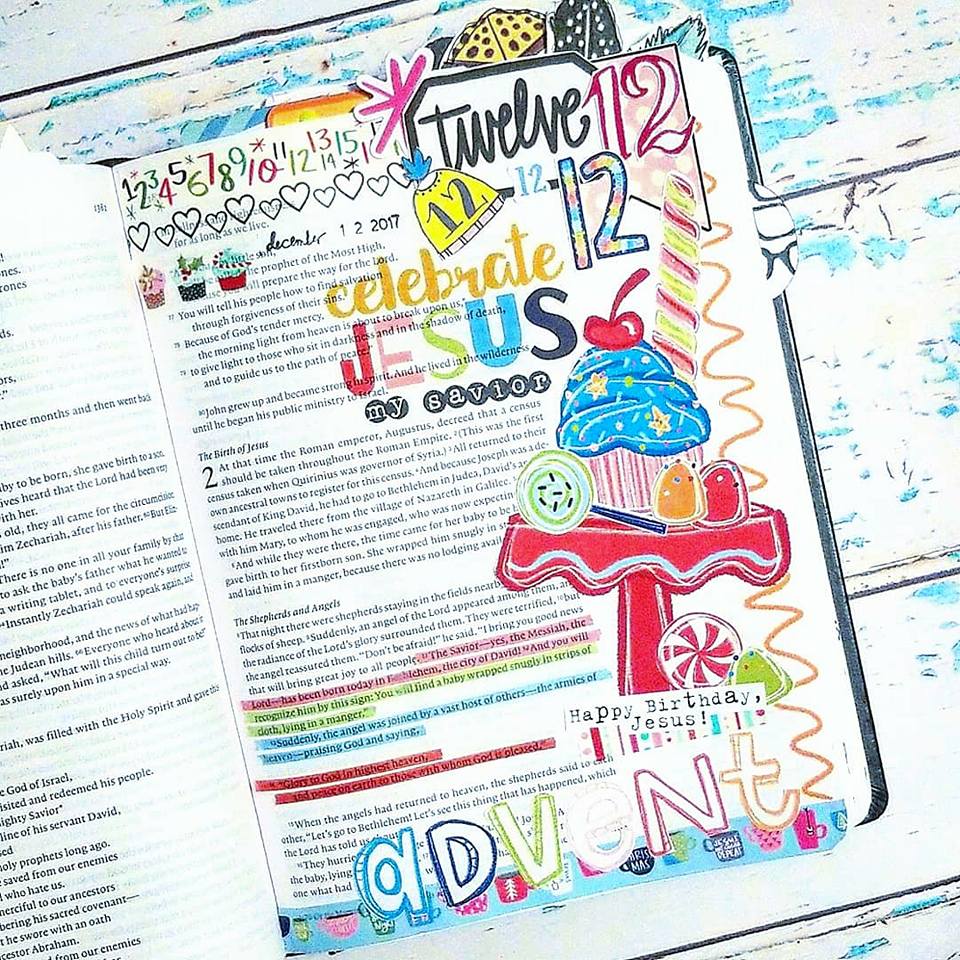 138
ones.
rones
three months and then went back
by to be born, she gave birth to a son.
ives heard that the Lord had been very
with her.
old, they all came for the circumcision
im Zechariah, after his father. 60But Eliz-
!"
There is no one in all your family by that
to ask the baby's father what he wanted
a writing tablet, and to everyone's surprise
64Instantly Zechariah could speak again, and
neighborhood, and the news of what had hap
he Judean hills. 66Everyone who heard about
nd asked, "What will this child turn out to be?"
as surely upon him in a special way.
riah, was filled with the Holy Spirit and gave this
e God of Israel,
isited and redeemed his people.
ighty Savior
line of his servant David,
sed
holy prophets long ago.
e saved from our enemies
l who hate us.
merciful to our ancestors
bering his sacred covenant—
t he swore with an oath
cestor Abraham.
ed from our enemies
twelve 12
1 2 3 4 5 6 7 8 9 10 11 12 13 14 15
12 12 12
for as long as we live.
december 12 2017
the prophet of the Most High,
prepare the way for the Lord.
You will tell his people how to find salvation
through forgiveness of their sins.
Because of God's tender mercy,
the morning light from heaven is about to break upon us,
to give light to those who sit in darkness and in the shadow of death,
and to guide us to the path of peace."
celebrate
JESUS
my savior
80John grew up and became strong in spirit. And he lived in the wilderness
until he began his public ministry to Israel.
The Birth of Jesus
2 At that time the Roman emperor, Augustus, decreed that a census
should be taken throughout the Roman Empire. 2(This was the first
census taken when Quirinius was governor of Syria.) 3All returned to their
own ancestral towns to register for this census. 4And because Joseph was a
scendant of King David, he had to go to Bethlehem in Judea, David's
home. He traveled there from the village of Nazareth in Galilee.
with him Mary, to whom he was engaged, who was now expecting
6And while they were there, the time came for her baby to be
gave birth to her firstborn son. She wrapped him snugly in
and laid him in a manger, because there was no lodging
The Shepherds and Angels
8That night there were shepherds staying in the fields nearby
flocks of sheep. 9Suddenly, an angel of the Lord appeared among them, an
the radiance of the Lord's glory surrounded them. They were terrified, 10but
the angel reassured them. "Don't be afraid!" he said. "I bring you good news
that will bring great joy to all people. 11The Savior—yes, the Messiah, the
Lord—has been born today in Bethlehem, the city of David! 12And you will
recognize him by this sign: You will find a baby wrapped snugly in strips of
cloth, lying in a manger."
13Suddenly, the angel was joined by a vast host of others—the armies of
heaven—praising God and saying,
14"Glory to God in highest heaven,
and peace on earth to those with whom God is pleased."
15When the angels had returned to heaven, the shepherds said to each
other, "Let's go to Bethlehem! Let's see this thing that has happened, which
the Lord has told
16They hurri
the baby, lying
one what had
Happy Birthday,
Jesus!
advent